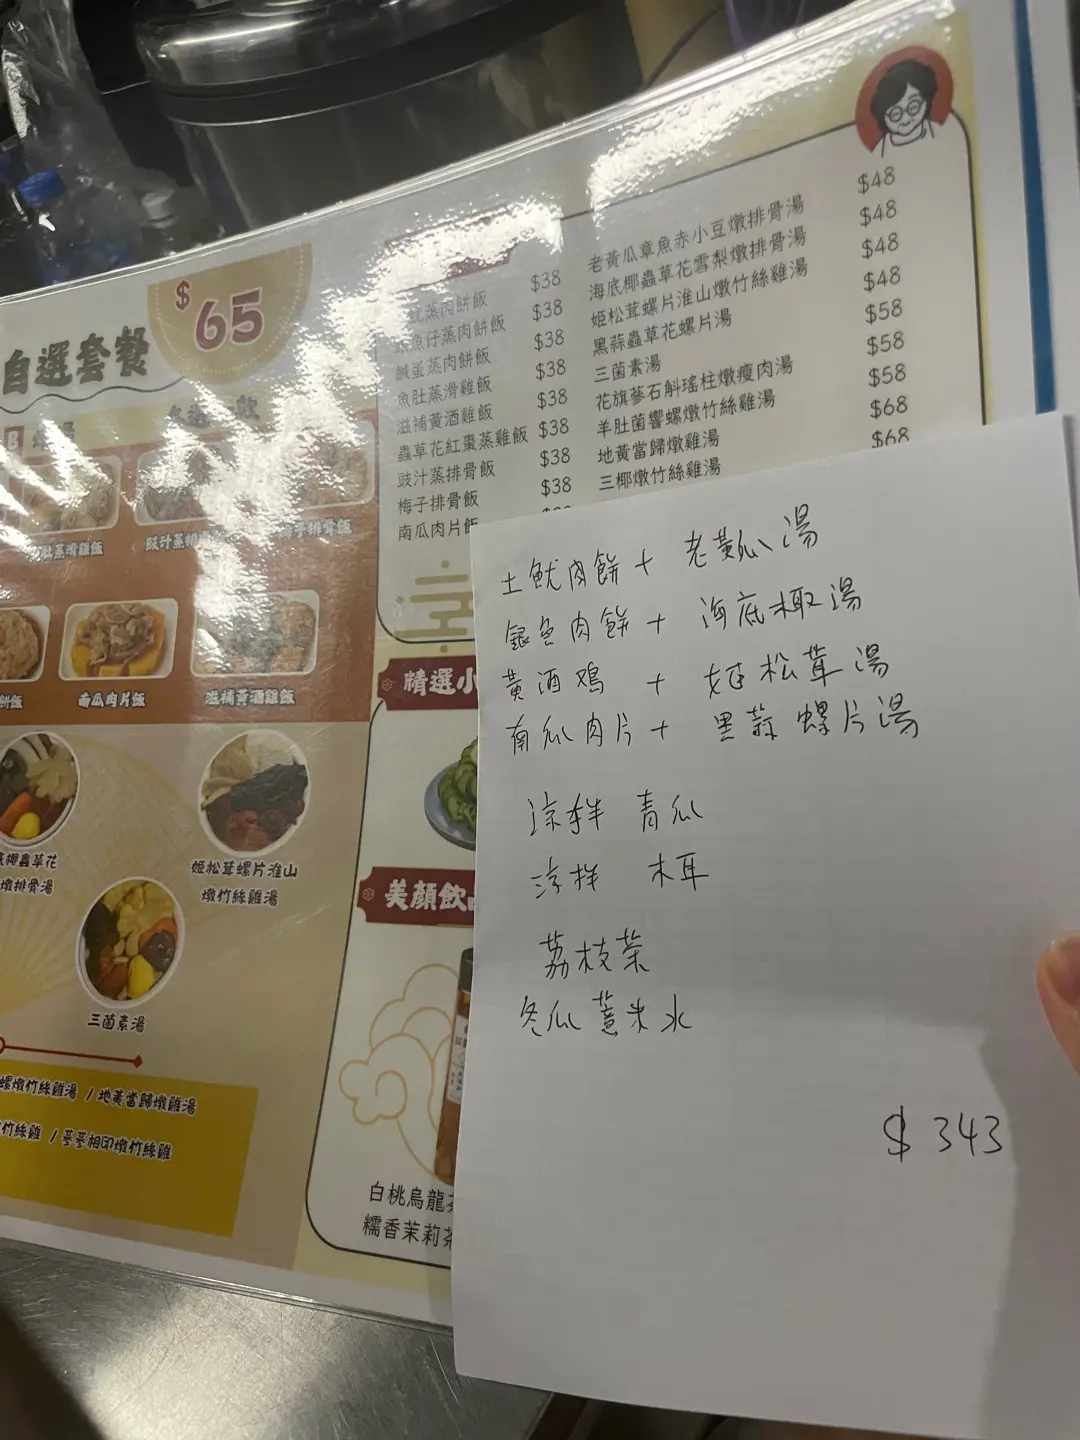 $65
自選套餐
B
蒸肉餅飯 $38
魚仔蒸肉餅飯 $38
鹹蛋蒸肉餅飯 $38
魚肚蒸滑雞飯 $38
滋補黃酒雞飯 $38
蟲草花紅棗蒸雞飯 $38
豉汁蒸排骨飯 $38
梅子排骨飯 $38
南瓜肉片飯
老黃瓜章魚赤小豆燉排骨湯 $48
海底椰蟲草花雪梨燉排骨湯 $48
姬松茸螺片淮山燉竹絲雞湯 $48
黑蒜蟲草花螺片湯 $48
三菌素湯 $58
花旗蔘石斛瑤柱燉瘦肉湯 $58
羊肚菌響螺燉竹絲雞湯 $58
地黃當歸燉雞湯 $68
三椰燉竹絲雞湯 $68
肚蒸滑雞飯
豉汁蒸排
梅子排骨飯
餅飯
南瓜肉片飯
滋補黃酒雞飯
底椰蟲草花
燉排骨湯
姬松茸螺片淮山
燉竹絲雞湯
三菌素湯
螺燉竹絲雞湯 / 地黃當歸燉雞湯
竹絲雞 / 蔘蔘相印燉竹絲雞
精選小
美顏飲
白桃烏龍茶
糯香茉莉茶
土魷肉餅 + 老黃瓜湯
銀魚肉餅 + 海底椰湯
黃酒鸡 + 姬松茸湯
南瓜肉片 + 黑蒜螺片湯
涼拌 青瓜
涼拌 木耳
荔枝茶
冬瓜薏米水
$343